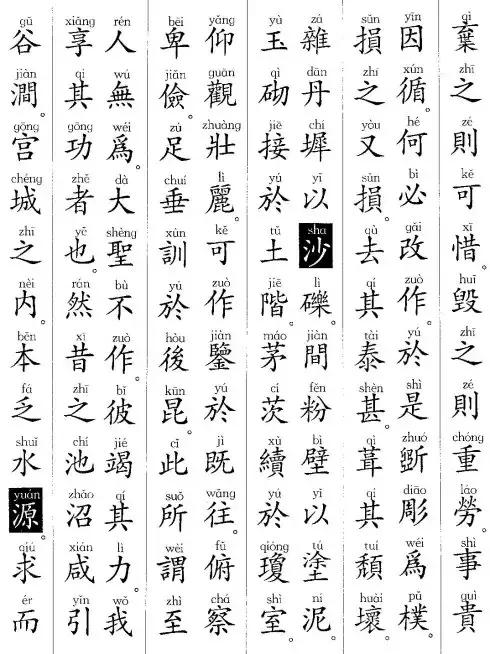 qì zhī zé kě xī huǐ zhī zé chóng láo shì guì
棄之則可惜。毀之則重勞。事貴
yīn xún hé bì gǎi zuò yú shì zhuó diāo wéi pǔ
因循。何必改作。於是斲彫爲樸。
sǔn zhī yòu sǔn qù qí tài shèn qì qí tuí huài
損之又損。去其泰甚。葺其頹壞。
zá dān chí yǐ sha lì jiàn fěn bì yǐ tú ní
雜丹墀以沙礫。間粉壁以塗泥。
yù qì jiē yú tǔ jiē máo cí xù yú qióng shì
玉砌接於土階。茅茨續於瓊室。
yǎng guān zhuàng lì kě zuò jiàn yú jì wǎng fǔ chá
仰觀壯麗。可作鑒於既往。俯察
bēi jiǎn zú chuí xùn yú hòu kūn cǐ suǒ wèi zhì
卑儉。足垂訓於後昆。此所謂至
rén wú wéi dà shèng bù zuò bǐ jié qí lì wǒ
人無爲。大聖不作。彼竭其力。我
xiǎng qí gōng zhě yě rán xī zhī chí zhǎo xián yǐn
享其功者也。然昔之池沼。咸引
gǔ jiàn gōng chéng zhī nèi běn fá shuǐ yuán qiú ér
谷澗。宮城之內。本乏水源。求而